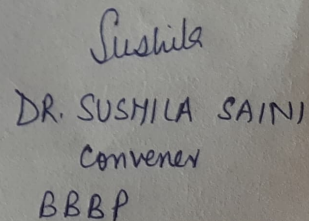 Sushila
DR. SUSHILA SAINI
Convener
BBBP